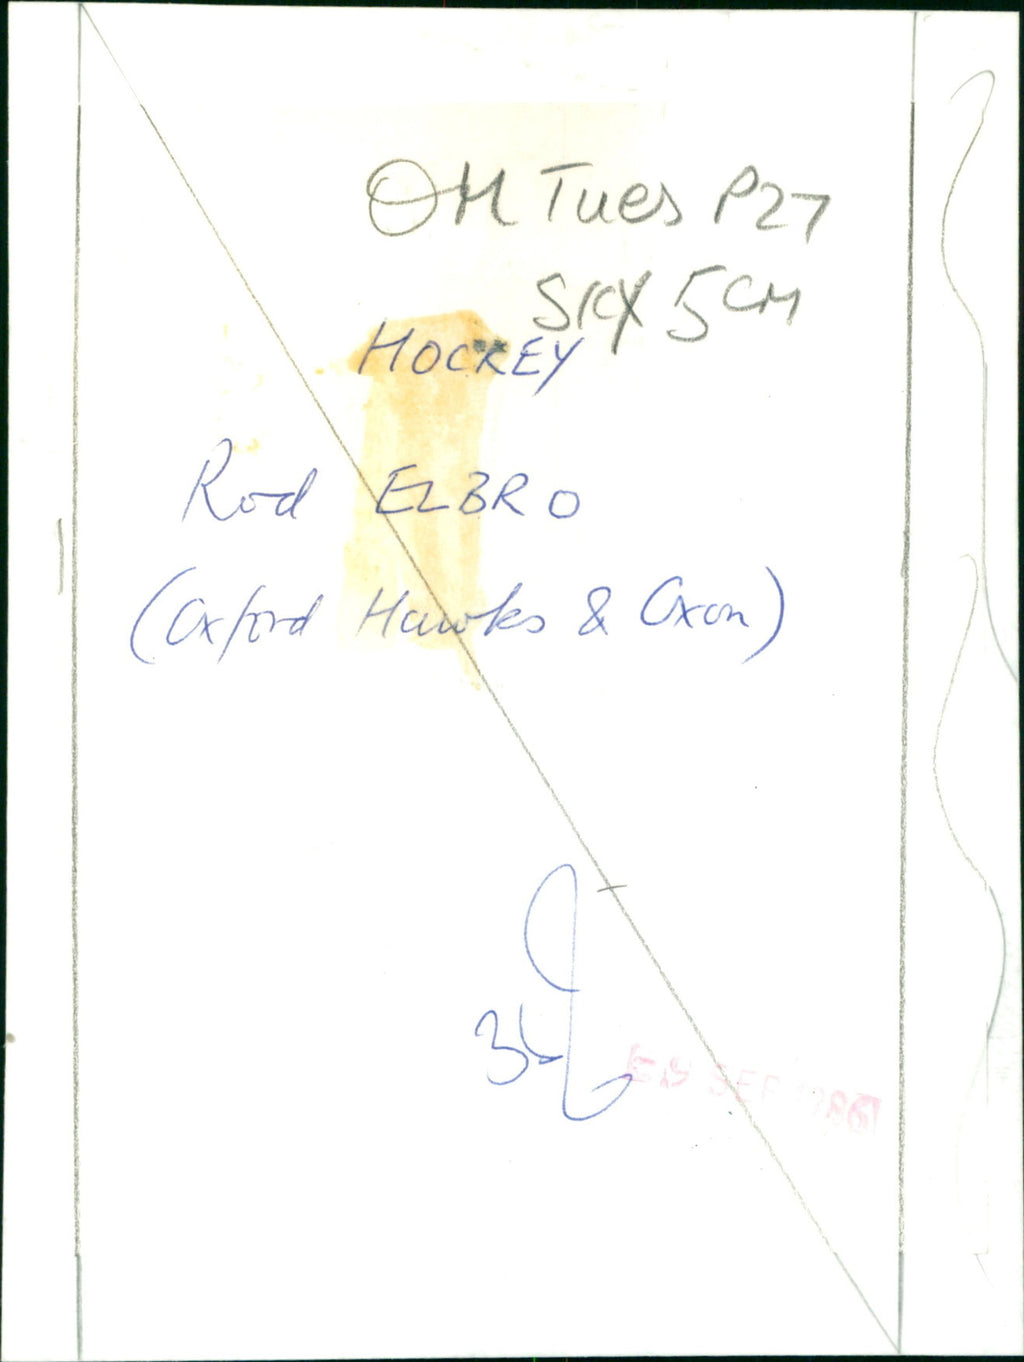 OM Tues P27
S/CX 5CM
HOCKEY
Rod ELBRO
(Oxford Hawks & Oxon)
SEP 1986